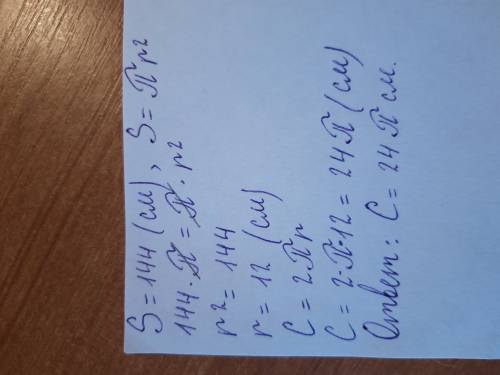 S = 144 (см), S = πr²
144·π = π·r²
r² = 144
r = 12 (см)
C = 2πr
C = 2·π·12 = 24π (см)
Ответ: C = 24π см.